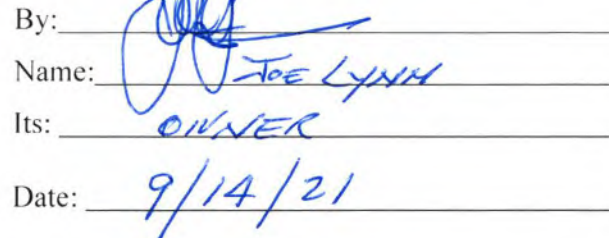 By:
Name: JOE LYNN
Its: OWNER
Date: 9/14/21